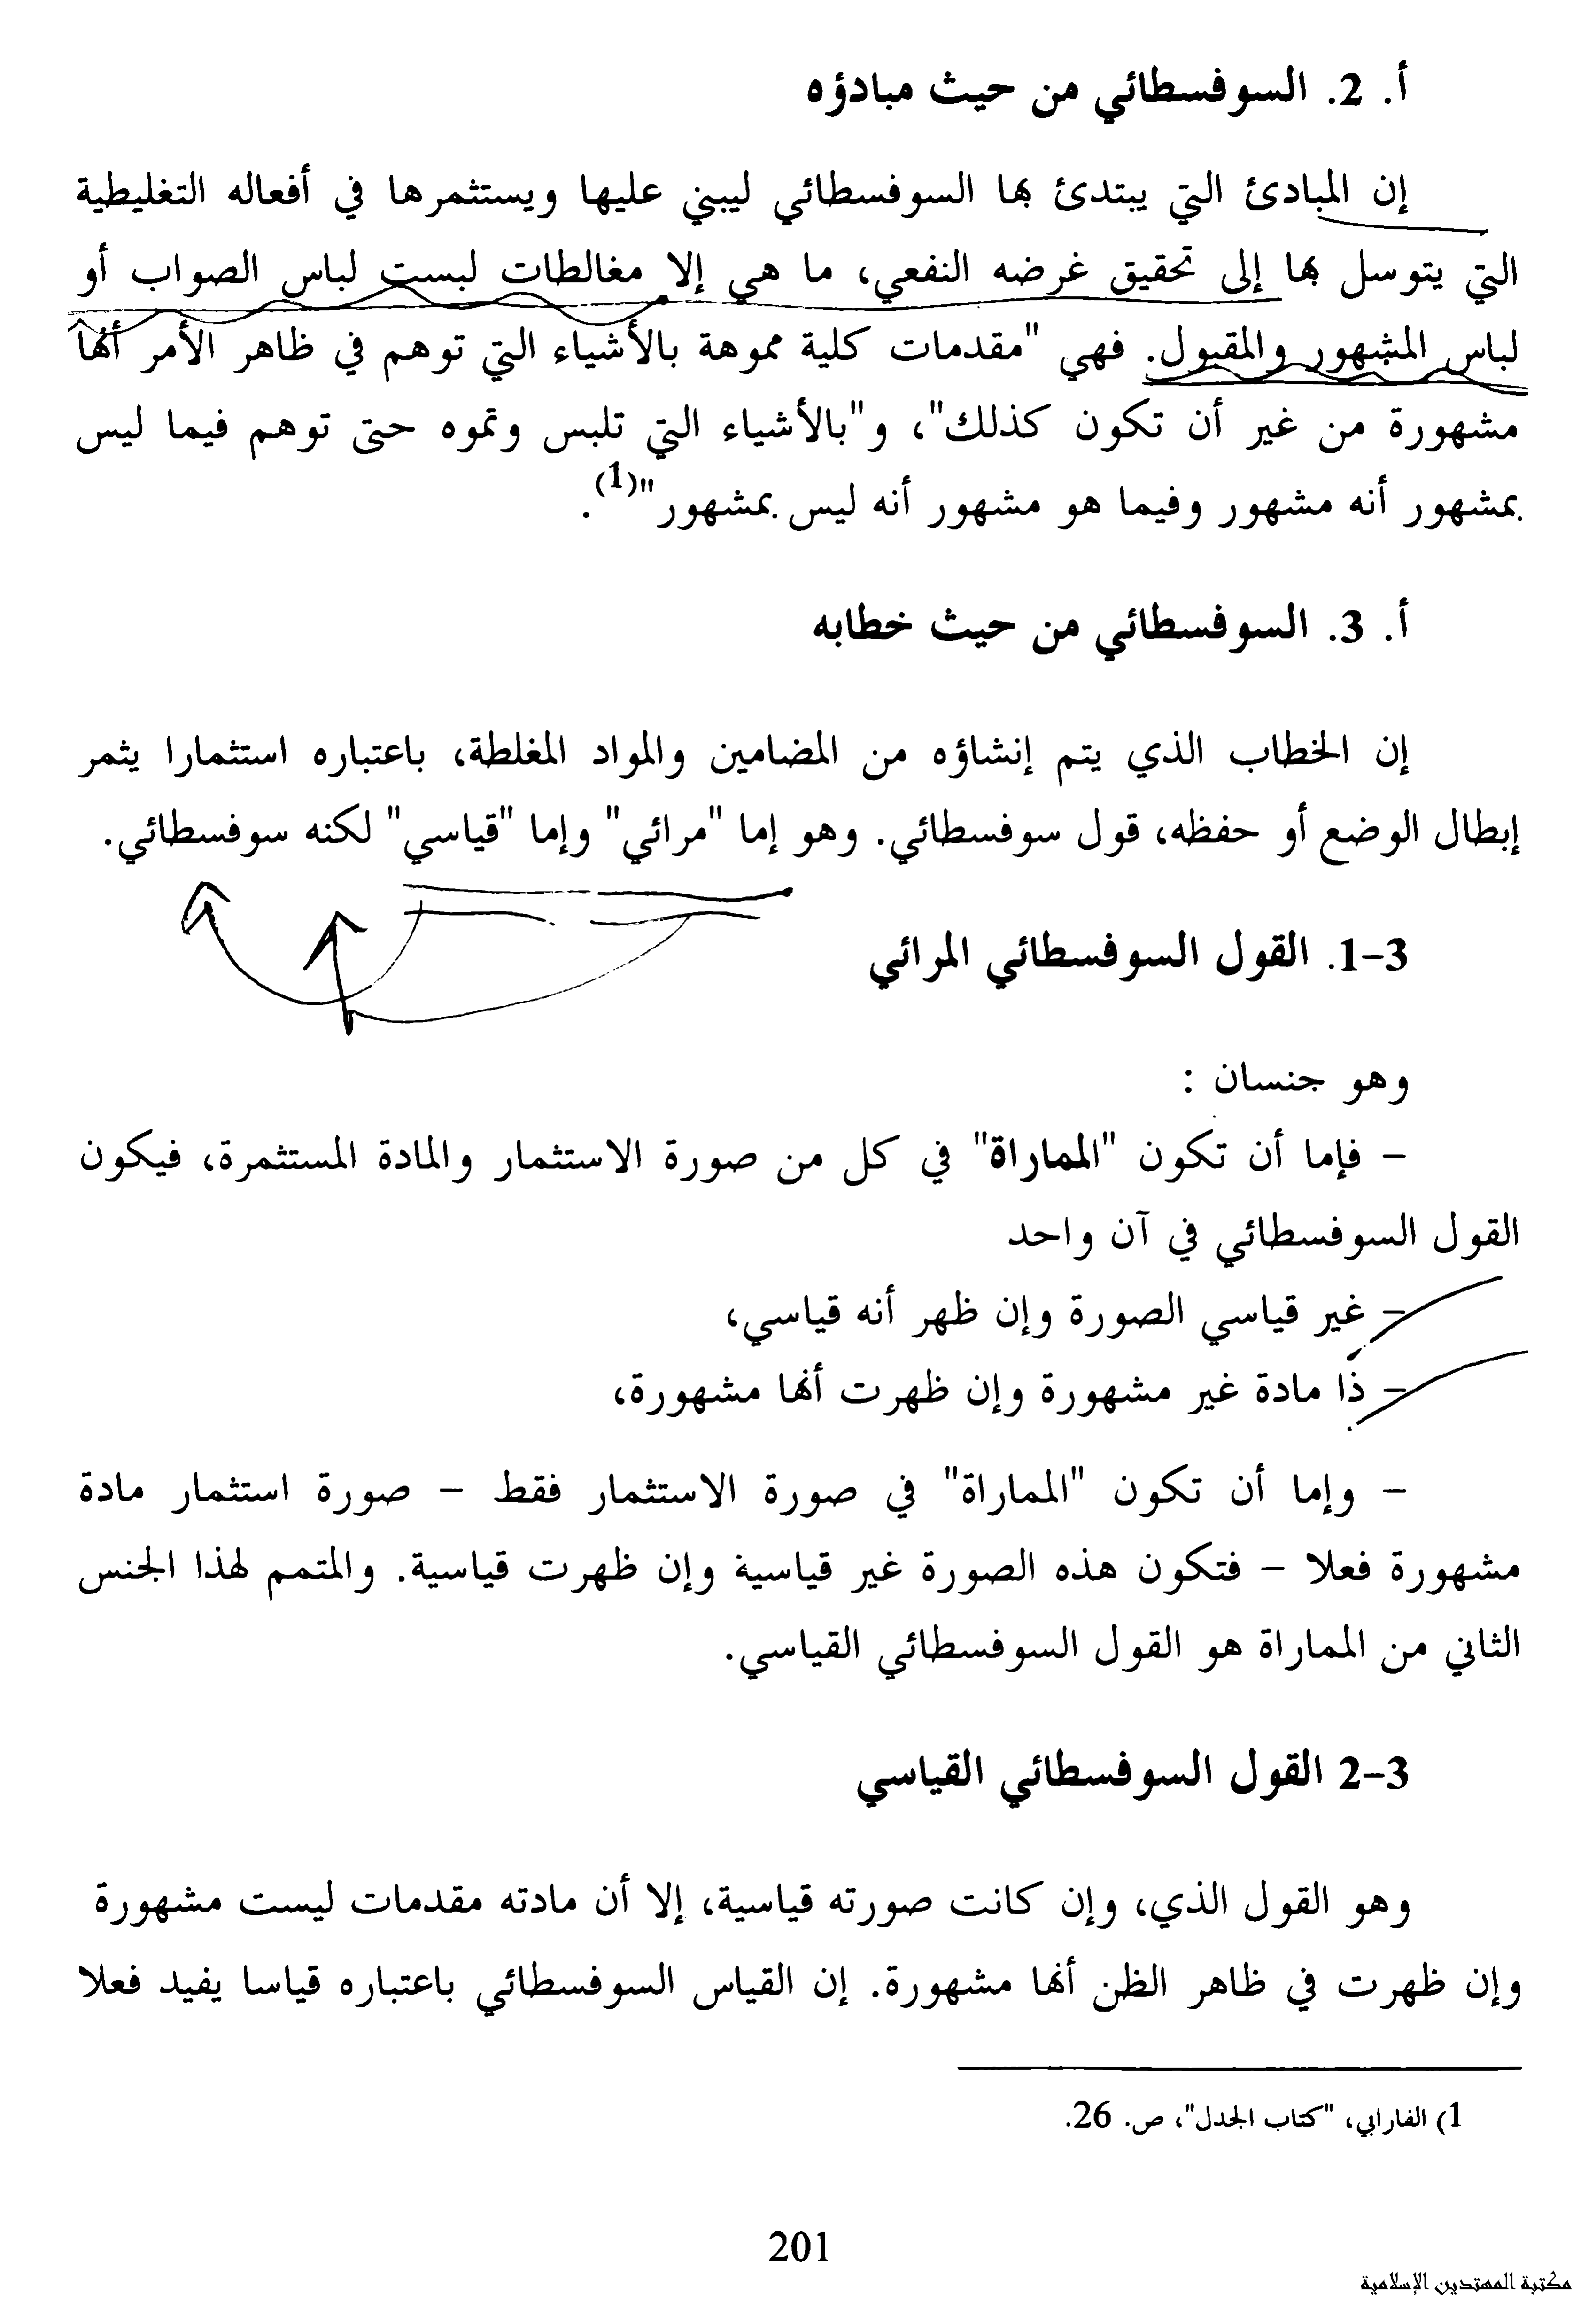 أ. 2. السوفسطائي من حيث مبادؤه
إن المبادئ التي يبتدئ بها السوفسطائي ليبني عليها ويستثمرها في أفعاله التغليطية
التي يتوسل بها إلى تحقيق غرضه النفعي، ما هي إلا مغالطات لبست لباس الصواب أو
لباس المشهور والمقبول. فهي "مقدمات كلية مموهة بالأشياء التي توهم في ظاهر الأمر أنها
مشهورة من غير أن تكون كذلك"، و"بالأشياء التي تلبس وتموه حتى توهم فيما ليس
بمشهور أنه مشهور وفيما هو مشهور أنه ليس بمشهور"(1).
أ. 3. السوفسطائي من حيث خطابه
إن الخطاب الذي يتم إنشاؤه من المضامين والمواد المغلطة، باعتباره استثمارا يثمر
إبطال الوضع أو حفظه، قول سوفسطائي. وهو إما "مرائي" وإما "قياسي" لكنه سوفسطائي.
3-1. القول السوفسطائي المرائي
وهو جنسان :
- فإما أن تكون "المماراة" في كل من صورة الاستثمار والمادة المستثمرة، فيكون
القول السوفسطائي في آن واحد
- غير قياسي الصورة وإن ظهر أنه قياسي،
- ذا مادة غير مشهورة وإن ظهرت أنها مشهورة،
- وإما أن تكون "المماراة" في صورة الاستثمار فقط - صورة استثمار مادة
مشهورة فعلا - فتكون هذه الصورة غير قياسية وإن ظهرت قياسية. والمتمم لهذا الجنس
الثاني من المماراة هو القول السوفسطائي القياسي.
3-2 القول السوفسطائي القياسي
وهو القول الذي، وإن كانت صورته قياسية، إلا أن مادته مقدمات ليست مشهورة
وإن ظهرت في ظاهر الظن أنها مشهورة. إن القياس السوفسطائي باعتباره قياسا يفيد فعلا
1) الفارابي، "كتاب الجدل"، ص. 26.
201
مكتبة المهتدين الإسلامية